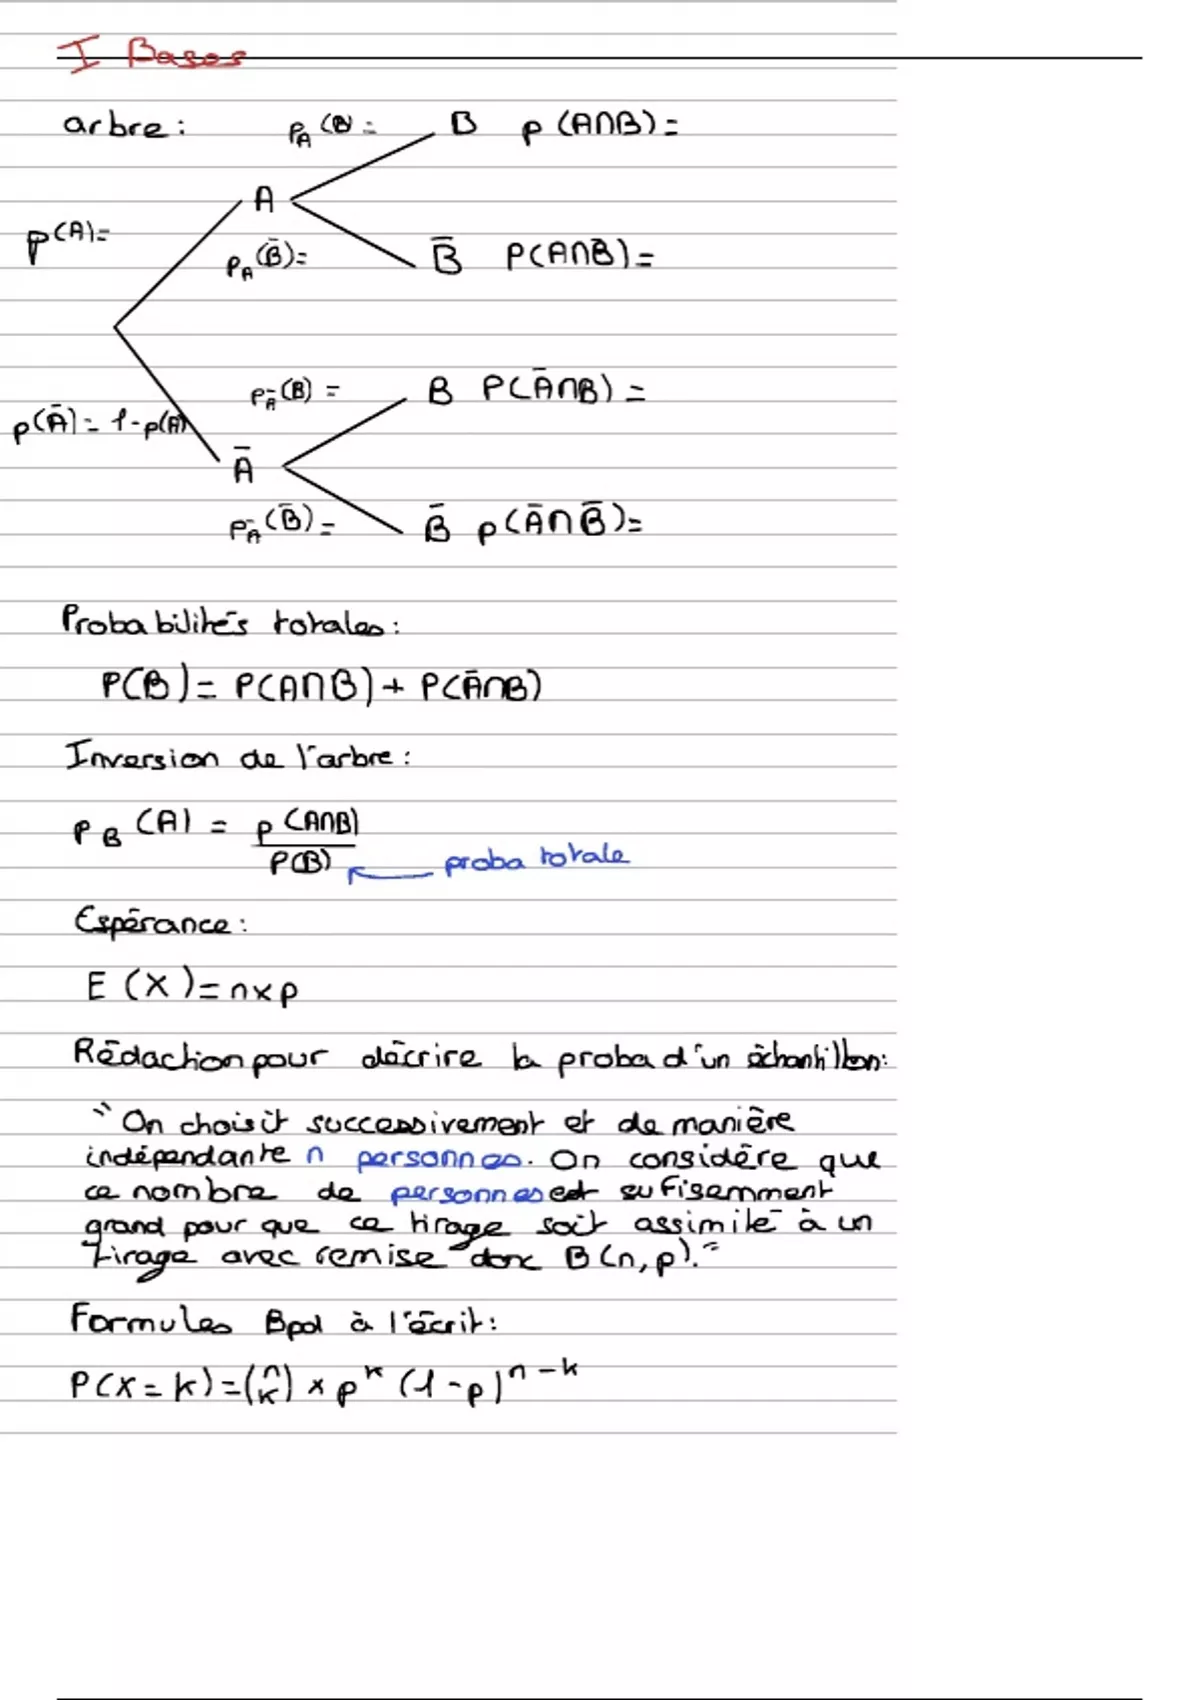 I Bases
arbre: p_A(B) = B p(A∩B) =
A
p(A)=
p_A(B̄)= B̄ P(A∩B̄) =
p_Ā(B) = B P(Ā∩B) =
p(Ā) = 1-p(A)
Ā
p_Ā(B̄) = B̄ p(Ā∩B̄)=
Probabilités totales:
P(B) = P(A∩B) + P(Ā∩B)
Inversion de l'arbre:
p_B(A) = p(A∩B)
P(B) proba totale
Espérance:
E(X) = n×p
Rédaction pour décrire la proba d'un échantillon:
"On choisit successivement et de manière
indépendante n personnes. On considère que
ce nombre de personnes est sufisemment
grand pour que ce tirage soit assimilé à un
tirage avec remise donc B(n,p)."
Formules Bpd à l'écrit:
P(X=k) = (n k) × p^k (1-p)^n-k